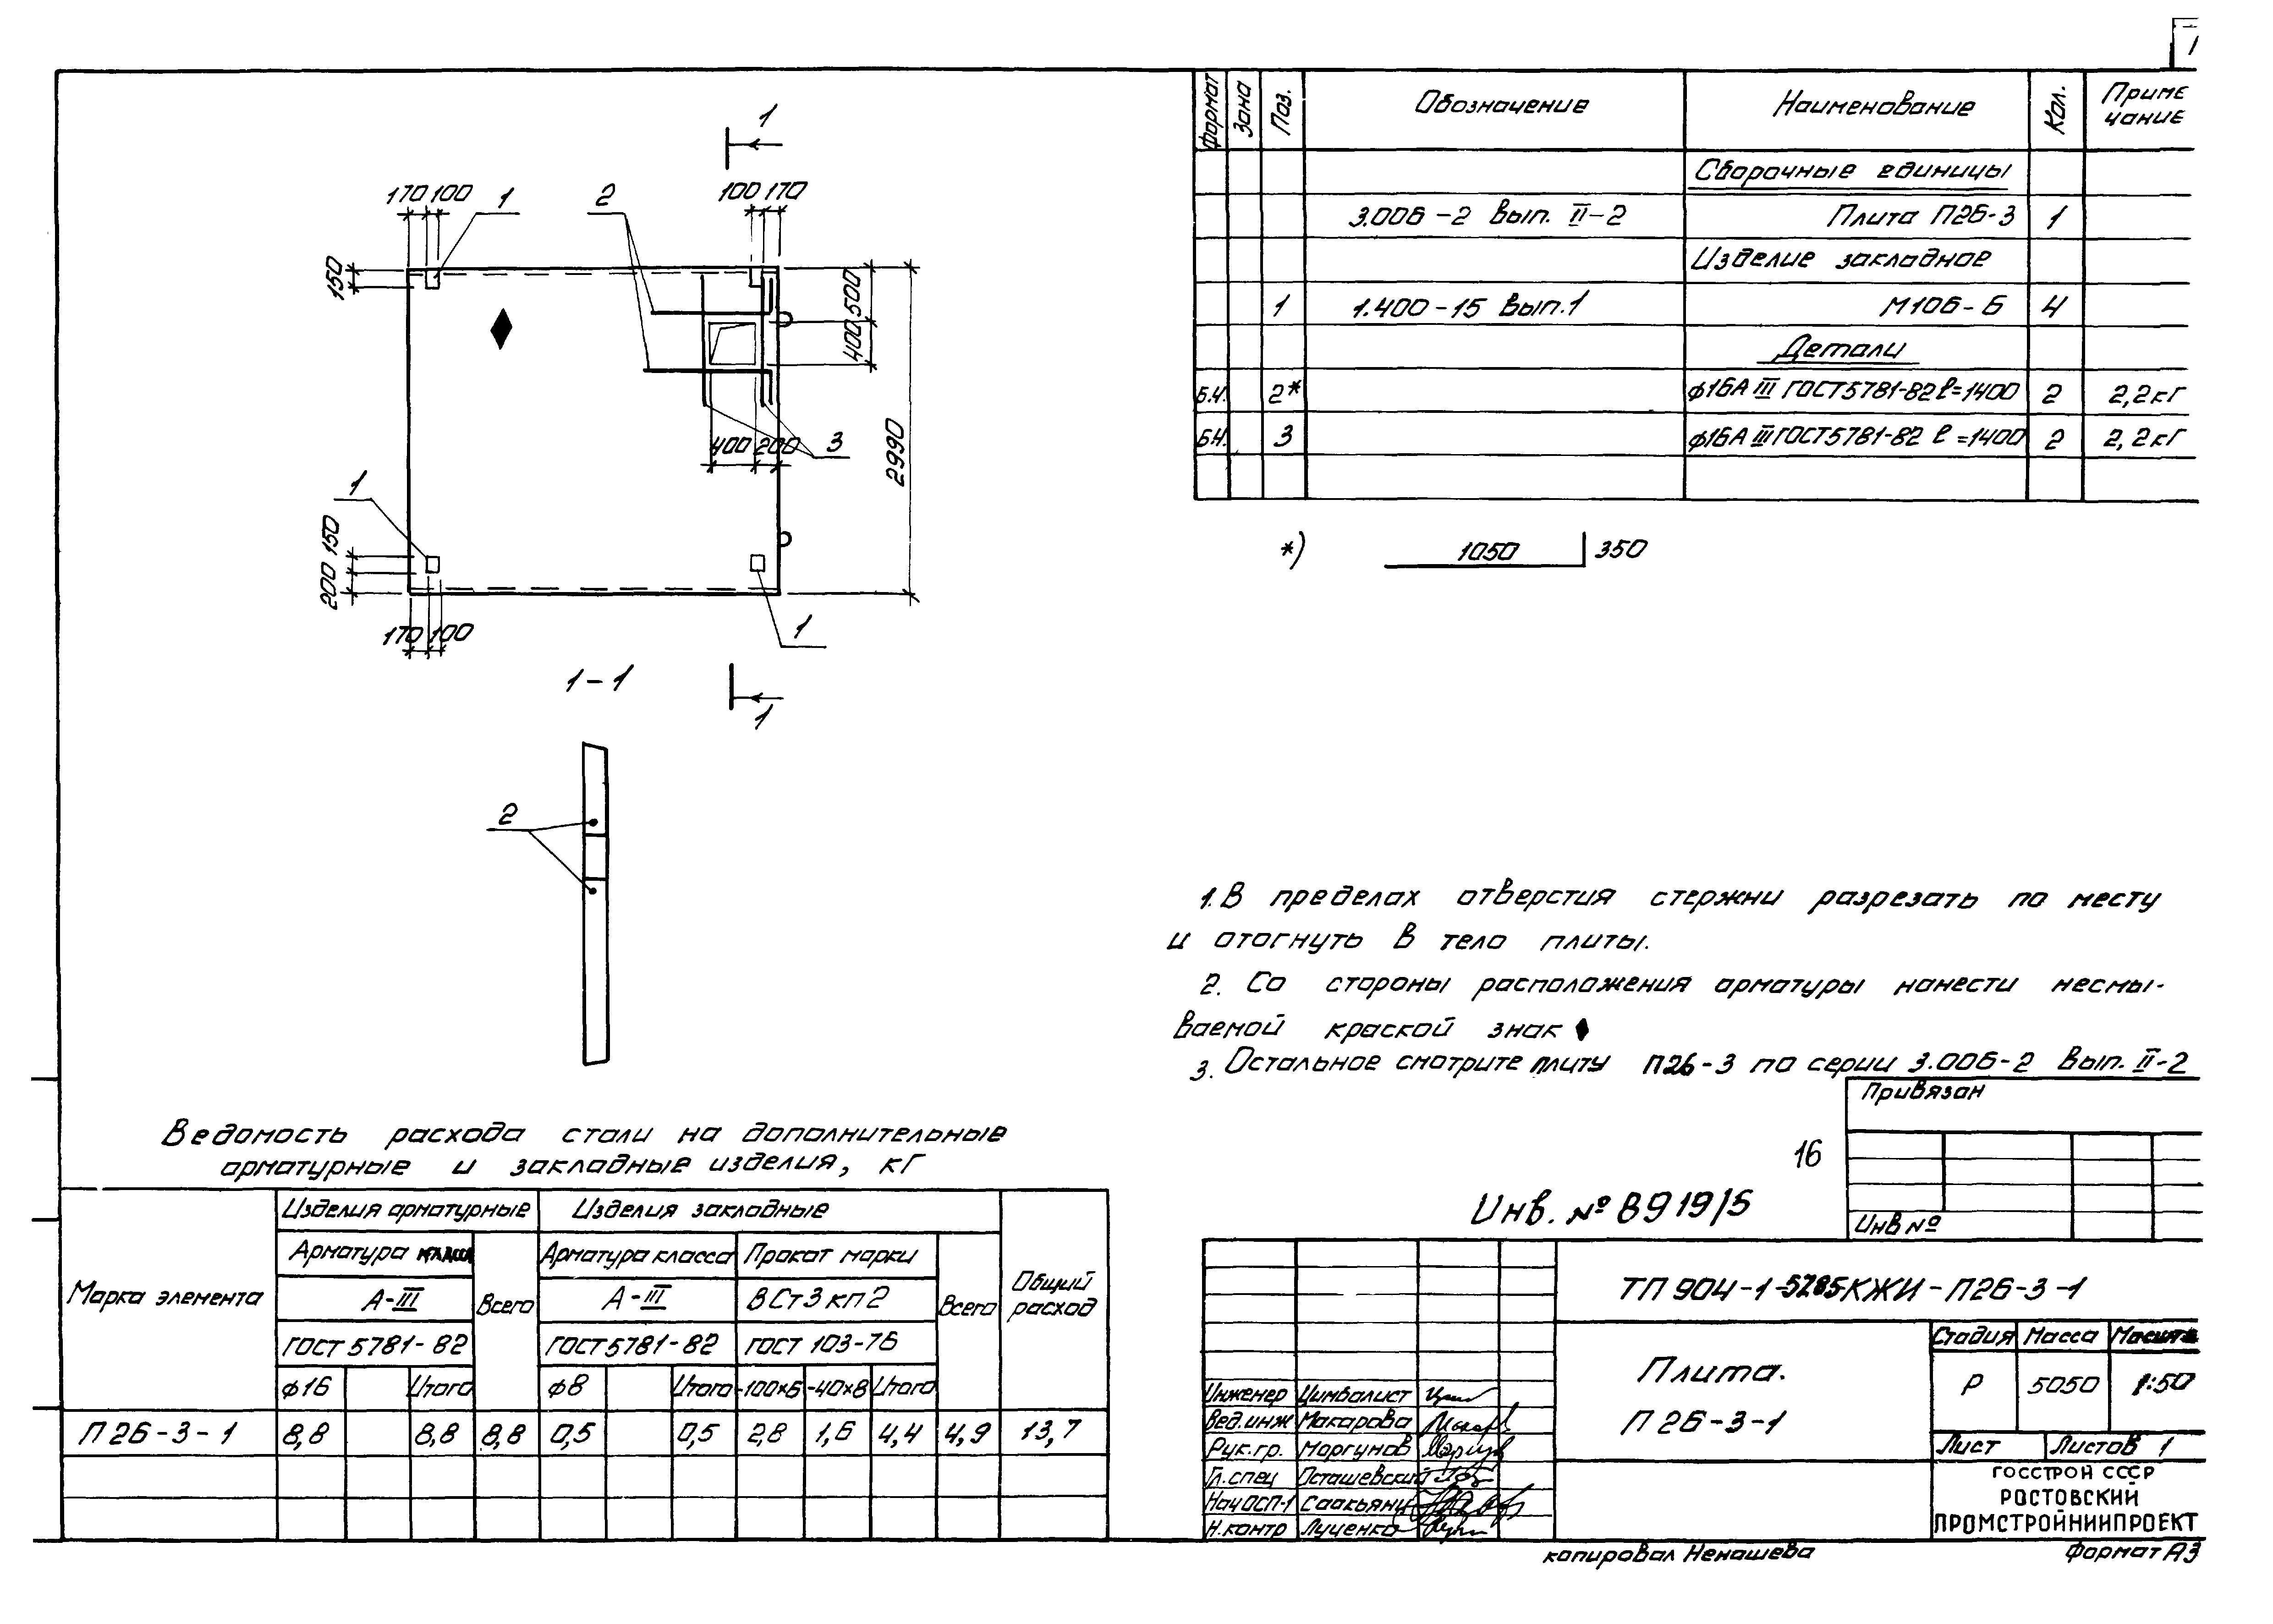 1
Формат
Зона
Поз.
Обозначение
Наименование
Кол.
Приме
чание
Сборочные единицы
3.006-2 Вып. II-2 Плита П26-3 1
Изделие закладное
1 1.400-15 Вып.1 М106-6 4
Детали
Б.Ч. 2* ф16А III ГОСТ 5781-82 ℓ=1400 2 2,2кг
БЧ. 3 ф16А III ГОСТ 5781-82 ℓ=1400 2 2,2кг
*) 1050 350
1
170 100 1 2 100 170
150
500
400
2990
400 200 3
1
150
200
170 100
1
1-1
1
2
1. В пределах отверстия стержни разрезать по месту
и отогнуть в тело плиты.
2. Со стороны расположения арматуры нанести несмы-
ваемой краской знак ♦
3. Остальное смотрите плиту П26-3 по серии 3.006-2 Вып. II-2
Ведомость расхода стали на дополнительные
арматурные и закладные изделия, кг
Марка элемента
Изделия арматурные Изделия закладные
Общий
расход
Арматура класса Арматура класса Прокат марки
А-III Всего А-III ВСт3 кп2 Всего
ГОСТ 5781-82 ГОСТ 5781-82 ГОСТ 103-76
ф16 Итого ф8 Итого -100х6 -40х8 Итого
П26-3-1 8,8 8,8 8,8 0,5 0,5 2,8 1,6 4,4 4,9 13,7
Привязан
16
Инв №
Инв. № 8919/5
ТП 904-1-5285 КЖИ-П26-3-1
Плита.
П26-3-1
Стадия Масса Масштаб
Р 5050 1:50
Лист Листов 1
ГОССТРОЙ СССР
РОСТОВСКИЙ
ПРОМСТРОЙНИИПРОЕКТ
Инженер Цимбалист
Вед.инж Макарова
Рук.гр. Моргунов
Гл.спец Осташевский
Нач ОСП-1 Саакьянц
Н.контр Луценко
копировал Ненашева Формат А3